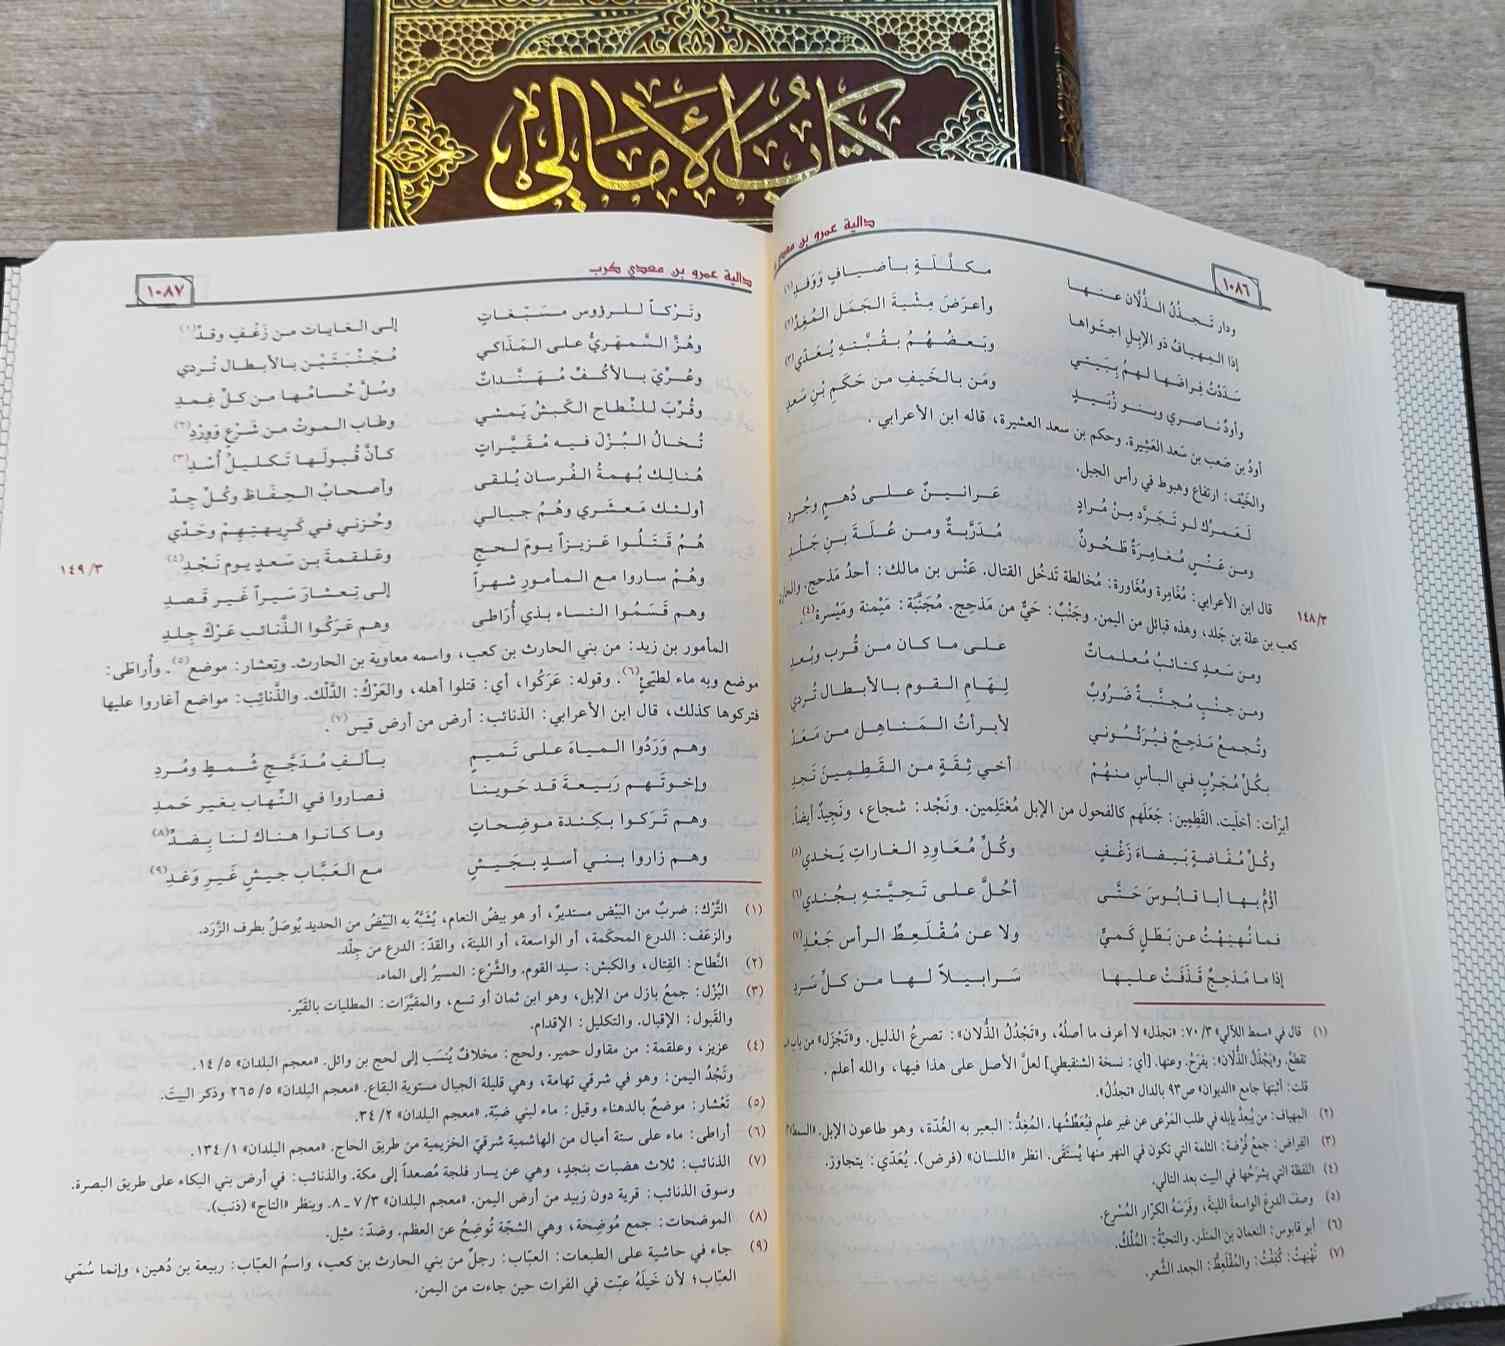 كتاب الأمالي
دالية عمرو بن معدي
١٠٨٦
ودار تَجذُلُ الذُّلَّان عنها مكلَّلَةٍ بأضيافٍ وَوَفدٍ(١)
إذا المِهيافُ ذو الإبلِ اجتَواها وأعرَضَ مِشْيةَ الجَمَل المُغِدِّ(٢)
سَدَدْتُ فِراضَها لهمُ بِبَيتي وبَعضُهُمُ بقُبَّتِهِ يُعَدِّي(٣)
وأودُ ناصري وبنو زُبَيدٍ ومَن بالخَيفِ من حَكَمِ بْنِ سَعدِ
أودُ بن صَعب بن سَعد العَشِيرة. وحكم بن سعد العشيرة، قاله ابن الأعرابي.
والخَيْف: ارتفاع وهبوط في رأس الجبل.
لَعَمرُك لو تَجَرَّد مِنْ مُرادٍ عَرانينٌ على دُهمٍ وجُردِ
ومن عَنْسٍ مُغامِرَةٌ طَحُونٌ مُدَرَّبةٌ ومن عُلَةَ بنِ جَلْدِ
١٤٨/٣
قال ابن الأعرابي: مُغامِرة ومُغاورة: مُخالطة تَدخُل القتال. عَنْس بن مالك: أحدُ مَذحج.
كعب بن علة بن جَلد، وهذه قبائل من اليمن. وجَنْبٌ: حَيٌّ من مَذحِج. مُجَنَّبَة: مَيْمنة ومَيْسرة(٤).
ومن سَعدٍ كتائبُ مُعلماتٌ على ما كان من قُرب وبُعدِ
ومن جنْبٍ مُجنَّبةٌ ضَرُوبٌ لِهَامِ القوم بالأبطال تُردي
وتُجمعُ مَذحِجٌ فيُرئِّسُوني لأبرأتُ المَناهِل من مَعَدِّ
بكلِّ مُجَرَّبٍ في البأس منهُمْ أخي ثِقَةٍ من القَطِمِينَ نَجدِ
أبرَأت: أخلَيت. القَطِمِين: جَعَلَهم كالفحول من الإبل مُغْتَلِمين. ونَجْد: شجاع، ونَجِيدٌ أيضاً.
وكُلِّ مُفَاضةٍ بَيضاءَ زَغْفٍ وكُلِّ مُعَاوِدِ الغاراتِ يَخدي(٥)
أؤُمُّ بها أبا قابُوسَ حَتَّى أحُلَّ على تَحِيَّتِهِ بجُندي(٦)
فما نُهنِهْتُ عن بَطَلٍ كَمِيٍّ ولا عن مُقْلَعِطِّ الرأس جَعْدِ(٧)
إذا ما مَذحِجٌ قَذَفَتْ عليها سَرابيلاً لها من كلِّ سَردِ
(١) قال في «سمط اللآلي» ٧٠/٣: «تجذل» لا أعرف ما أصلُهُ، و«تَجْدُلُ الذُّلان»: تصرعُ الذليل. و«تَجْزَل» من باب
تقطعُ. و«يَجْذَلُ الذُّلان»: يفرَحُ. وعنها. [أي: نسخة الشنقيطي] لعلَّ الأصل على هذا فيها، والله أعلم.
قلت: أثبتها جامع «الديوان» ص٩٣ بالدال «تجدلُ».
(٢) المهياف: من يُبعدُ بإبله في طلب المَرْعى عن غير علمٍ فيُعَطِّشُها. المُغِدُّ: البعير به الغُدَّة، وهو طاعون الإبل.
(٣) الفِراض: جمعُ فُرْضة: الثلمة التي تكون في النهر منها يُستَقَى. انظر «اللسان» (فرض). يُعَدِّي: يتجاوَز.
(٤) اللفظة التي يشرَحُها في البيت بعد التالي.
(٥) وصفَ الدرعَ الواسعةَ اللينة، وفَرَسَهُ الكرَّار المُسْرع.
(٦) أبو قابوس: النعمان بن المنذر. والتحيَّة: المُلْكُ.
(٧) نُهنِهتُ: كُفِفْتُ: والمُقْلَعِطُّ: الجعد الشَّعر.
دالية عمرو بن معدي كرب
١٠٨٧
وتَرْكاً للرؤوس مسَبَّغاتٍ إلى الغايات من زَغَفٍ وقدِّ(١)
وهُزَّ السَّمهَرِيُّ على المَذَاكي مُجَنَّبَتَيْن بالأبطال تُردي
وعُرِّيَ بالأكُفِّ مُهَنَّداتٌ وسُلَّ حُسامُها من كلِّ غِمدِ
وقُرِّبَ للنِّطاح الكَبشُ يَمشي وطاب الموتُ من شَرْعٍ وَوِرْدِ(٢)
تُخالُ البُزْلَ فيه مُقَيَّراتٍ كأنَّ قُبولَها تَكليلُ أُسْدِ(٣)
هُنالِك بُهمةُ الفُرسان يُلقى وأصحابُ الحِفَاظ وكُلُّ جِدِّ
أولئك مَعشَري وهُمُ جبالي وحُزني في كَرِيهتِهِمْ وحَدِّي
هُمُ قَتَلُوا عَزيزاً يومَ لحجٍ وعَلقمةَ بن سَعدٍ يوم نَجْدِ(٤)
١٤٩/٣
وهُمْ ساروا مع المأمورِ شهراً إلى تِعشارَ سَيراً غَير قَصدِ
وهم قَسَمُوا النساء بذي أُرَاطى وهم عَرَكُوا الذَّنائب عَرْكَ جِلدِ
المأمور بن زيد: من بني الحارث بن كعب، واسمه معاوية بن الحارث. وتِعشار: موضع(٥). وأُراطَى:
موضع وبه ماء لطيّئ(٦). وقوله: عَرَكُوا، أي: قتلوا أهله، والعَرْكُ: الدَّلْك. والذَّنائِب: مواضع أغاروا عليها
فتركوها كذلك، قال ابن الأعرابي: الذنائب: أرض من أرض قيس(٧).
وهم وَرَدُوا المياهَ على تَميمٍ بألفِ مُدَجَّجٍ شُمطٍ ومُردِ
وإخوتَهم رَبيعةَ قد حَوينا فصاروا في النِّهاب بغير حَمدِ
وهم تَركوا بكِندةَ موضِحاتٍ وما كانوا هناك لنا بِضدِّ(٨)
وهم زاروا بني أسدٍ بجَيشٍ مع العَبَّاب جيشٍ غَيرِ وَغدِ(٩)
(١) التَّرْك: ضربٌ من البَيْض مستديرٌ، أو هو بيضُ النعام، يُشَبَّهُ به البَيْضُ من الحديد يُوصَلُ بطرف الزَّرَد.
والزغف: الدرع المحكَمة، أو الواسعة، أو اللينة، والقدّ: الدرع من جِلْد.
(٢) النِّطاح: القِتال، والكبش: سيد القوم. والشَّرْع: المسيرُ إلى الماء.
(٣) البُزْل: جمعُ بازل من الإبل، وهو ابن ثمان أو تسع، والمقيَّرات: المطليات بالقَيْر.
والقَبول: الإقبال. والتكليل: الإقدام.
(٤) عزيز، وعلقمة: من مقاول حمير. ولحج: مخلافٌ يُنسَب إلى لحج بن وائل. «معجم البلدان» ١٤/٥.
ونَجْدُ اليمن: وهو في شرقي تهامة، وهي قليلة الجبال مستوية البقاع. «معجم البلدان» ٢٦٥/٥ وذكر البيتَ.
(٥) تَعْشار: موضعٌ بالدهناء وقيل: ماء لبني ضبّة. «معجم البلدان» ٣٤/٢.
(٦) أراطى: ماء على ستة أميال من الهاشمية شرقيّ الخزيمية من طريق الحاج. «معجم البلدان» ١٣٤/١.
(٧) الذنائب: ثلاث هضبات بنجدٍ، وهي عن يسار فلجة مُصعداً إلى مكة. والذنائب: في أرض بني البكاء على طريق البصرة.
وسوق الذنائب: قرية دون زبيد من أرض اليمن. «معجم البلدان» ٧/٣ ـ ٨. وينظر «التاج» (ذنب).
(٨) الموضحات: جمع مُوضِحة، وهي الشجّة تُوضِحُ عن العظم. وضدّ: مثيل.
(٩) جاء في حاشية على الطبعات: العبّاب: رجلٌ من بني الحارث بن كعب، واسمُ العبّاب: ربيعة بن دُهين، وإنما سُمّي
العبّاب؛ لأن خَيلَهُ عبّت في الفرات حين جاءت من اليمن.